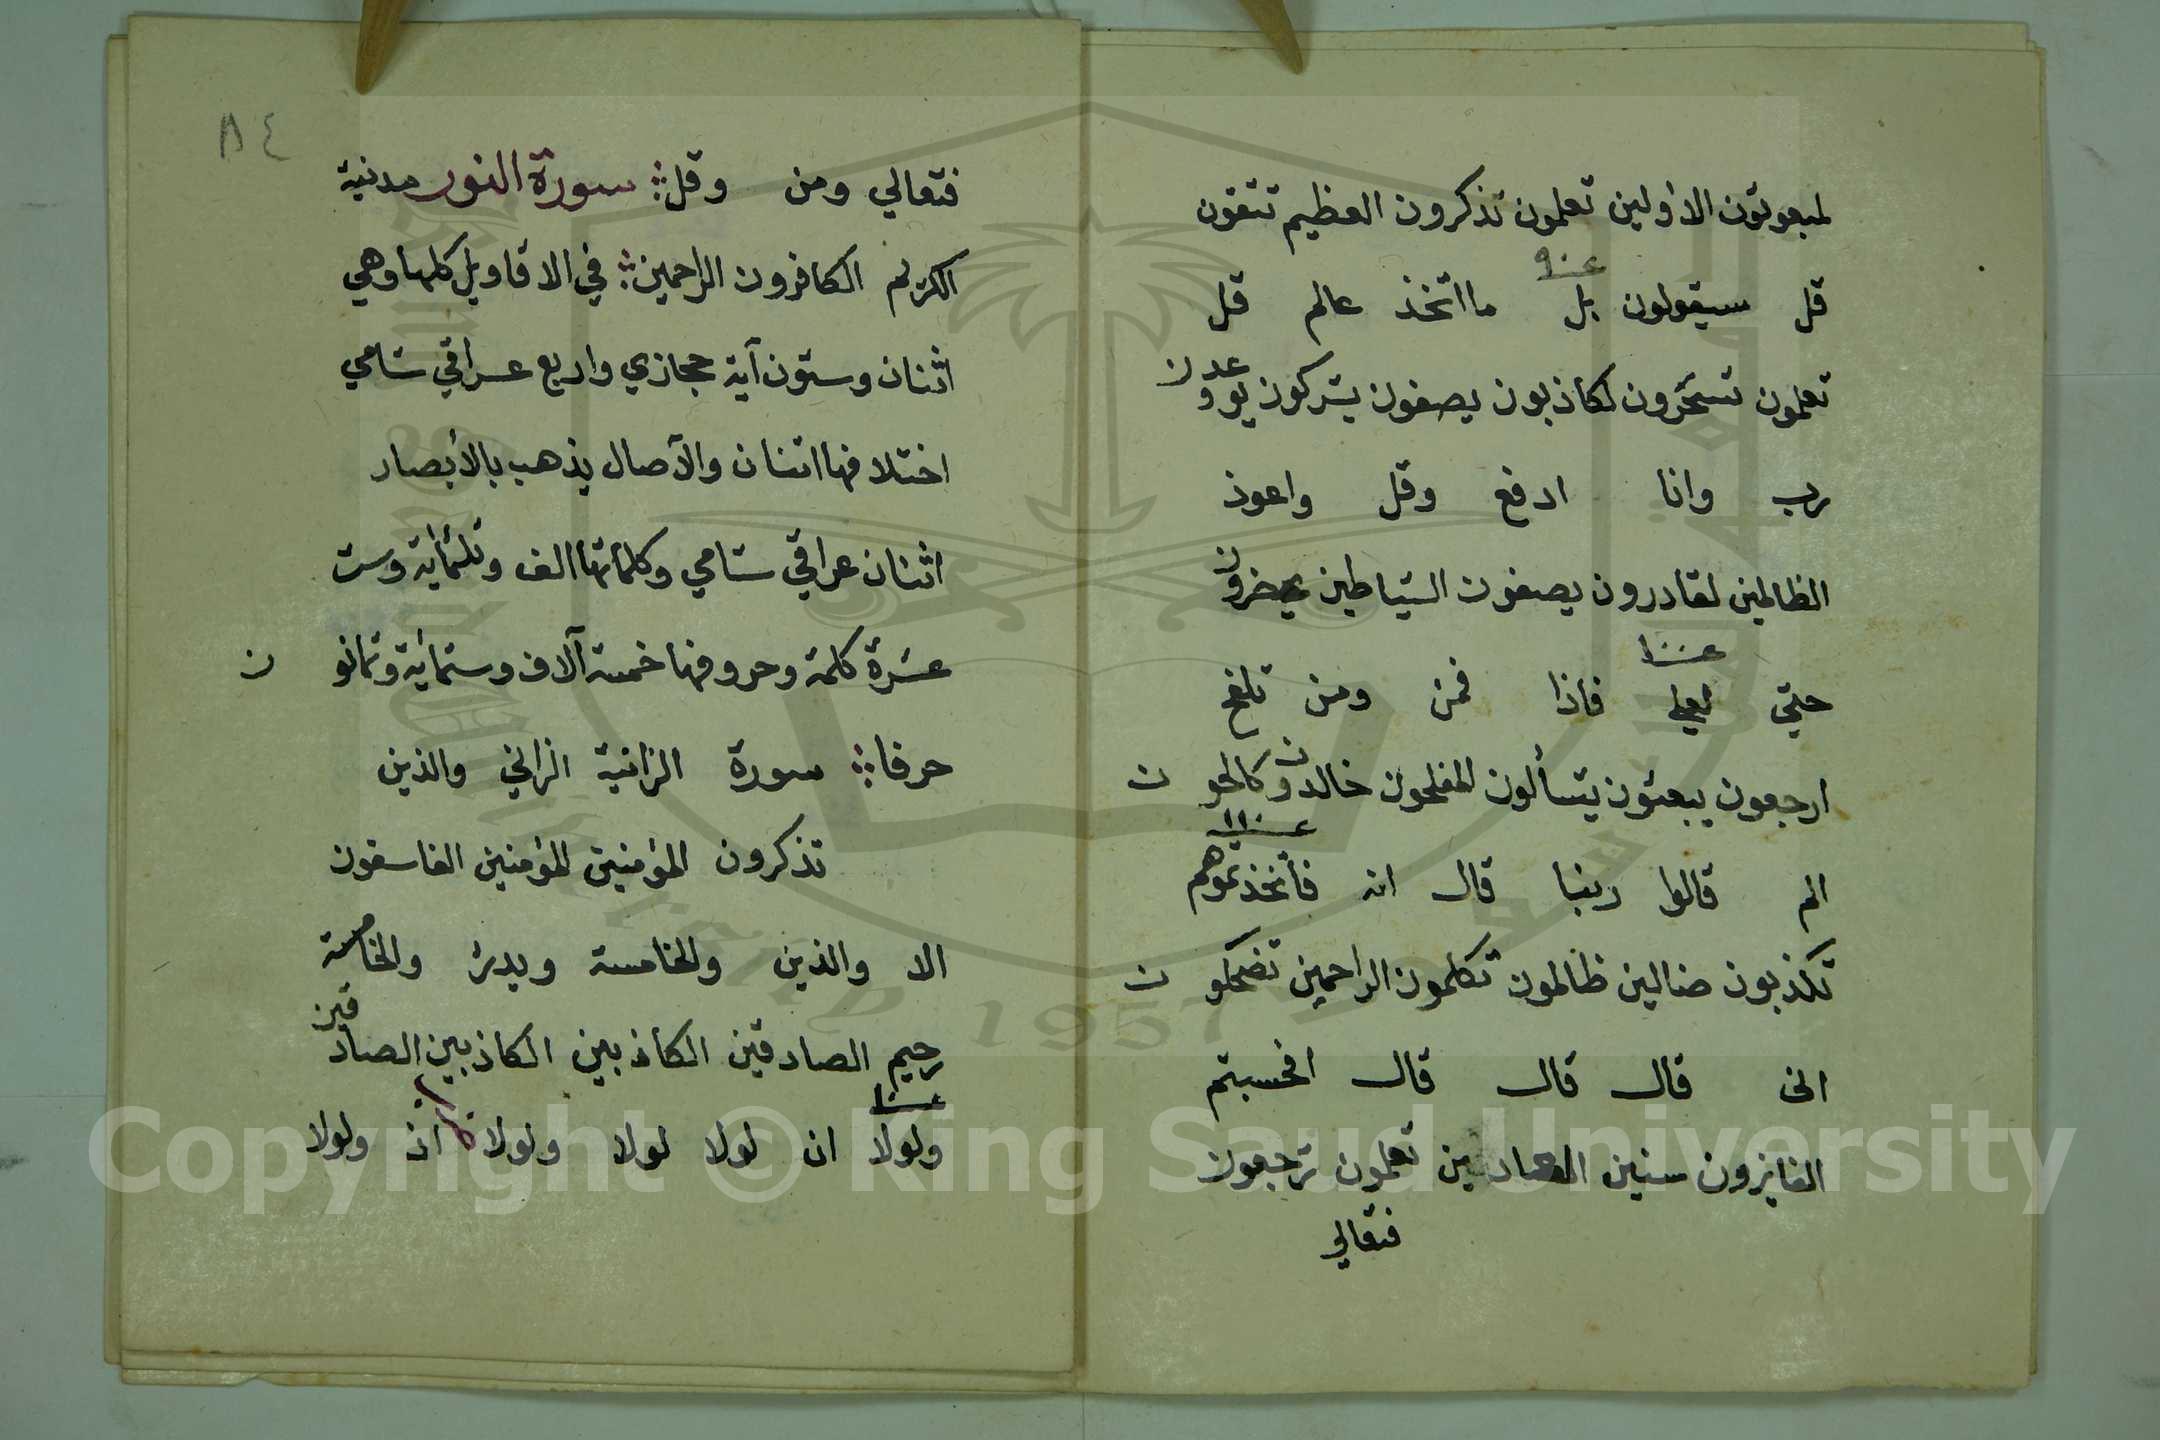 لمبعوثون الاولين تعلمون تذكرون العظيم تتقون
قل سيقولون بل ما اتخذ عالم قل
تعلمون تسحرون لكاذبون يصفون يشركون يوعدون
رب وانا ادفع وقل واعوذ
الظالمين لقادرون يصفون الشياطين يحضرون
حتي لعلي فاذا فمن ومن تلفح
ارجعون يبعثون يتسألون المفلحون خالدون كالحون
الم قالوا ربنا قال انه فأتخذتموهم
تكذبون ضالين ظالمون تكلمون الراحمين تضحكون
اني قال قال قال افحسبتم
الفايزون سنين العادين تعلمون ترجعون
فتعالي
٨٤
فتعالي ومن وقل سورة النور مدنية
الكريم الكافرون الراحمين في الاقاويل كلها وهي
اثنان وستون آية حجازي واربع عراقي شامي
اختلافها اثنان والآصال يذهب بالأبصار
اثنان عراقي شامي وكلماتها الف وثلثمائة وست
عشرة كلمة وحروفها خمسة آلاف وستمائة وثمانون
حرفا سورة الزانية الزاني والذين
تذكرون المؤمنين المؤمنين الفاسقون
الا والذين والخامسة ويدرؤ والخامسة
رحيم الصادقين الكاذبين الكاذبين الصادقين
ولولا ان لولا لولا ولولا اذ ولولا
Copyright © King Saud University
King Saud University
1957